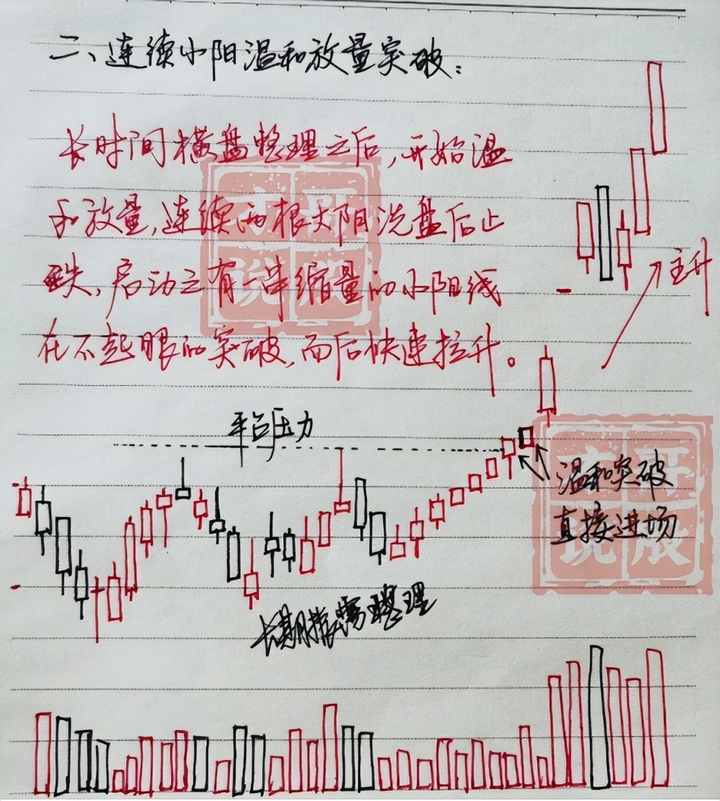 二、连续小阳温和放量突破：
长时间横盘整理之后，开始温
和放量，连续两根大阴洗盘后止
跌、启动立有一串缩量的小阳线
在不起眼的突破，而后快速拉升。
主升
平台压力
温和突破
直接进场
长期横盘整理